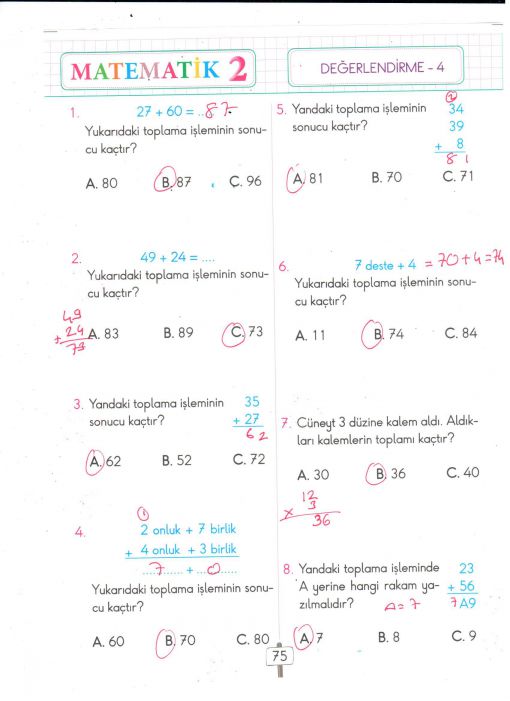 MATEMATİK 2
DEĞERLENDİRME - 4
1. 27 + 60 = ..87
Yukarıdaki toplama işleminin sonu-
cu kaçtır?
A. 80 B. 87 C. 96
2. 49 + 24 = ....
Yukarıdaki toplama işleminin sonu-
cu kaçtır?
49
+ 24
73
A. 83 B. 89 C. 73
3. Yandaki toplama işleminin
sonucu kaçtır?
35
+ 27
62
A. 62 B. 52 C. 72
4.
1
2 onluk + 7 birlik
+ 4 onluk + 3 birlik
....7..... + ...0.....
Yukarıdaki toplama işleminin sonu-
cu kaçtır?
A. 60 B. 70 C. 80
5. Yandaki toplama işleminin
sonucu kaçtır?
2
34
39
+ 8
81
A. 81 B. 70 C. 71
6. 7 deste + 4 = 70+4=74
Yukarıdaki toplama işleminin sonu-
cu kaçtır?
A. 11 B. 74 C. 84
7. Cüneyt 3 düzine kalem aldı. Aldık-
ları kalemlerin toplamı kaçtır?
A. 30 B. 36 C. 40
12
x 3
36
8. Yandaki toplama işleminde
A yerine hangi rakam ya-
zılmalıdır? A=7
23
+ 56
7A9
A. 7 B. 8 C. 9
75